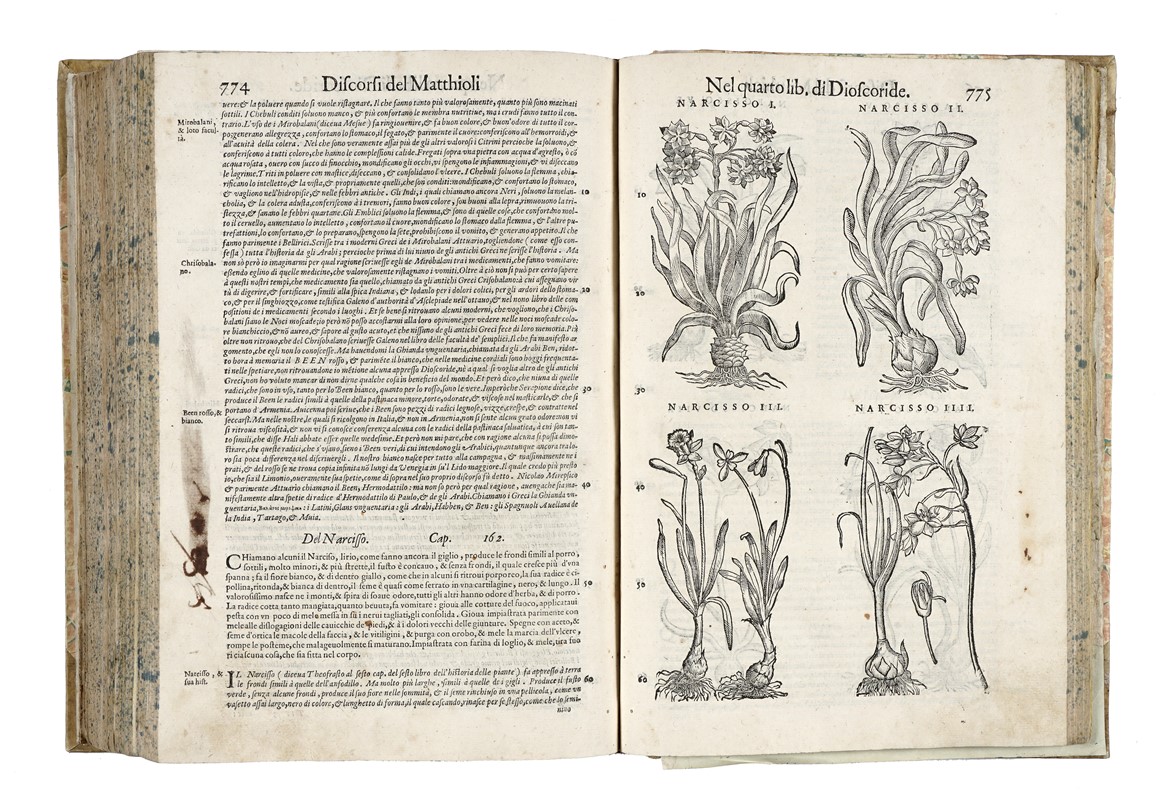 774 Discorsi del Matthioli
uere: & la poluere quando si vuole ristagnare. Il che fanno tanto più valorosamente, quanto più sono macinati
Mirobalani, & loro facultà.
sottili. I Chebuli conditi soluono manco, & più confortano le membra nutritiue, ma i crudi fanno tutto il con-
trario. L'vso de i Mirobalani (diceua Mesue) fa ringiouenire, & fa buon colore, & buon'odore di tutto il cor-
po: generano allegrezza, confortano lo stomaco, il fegato, & parimente il cuore: conferiscono all'hemorroidi, &
all'acuità della colera. Nel che sono veramente assai più de gli altri valorosi i Citrini percioche la soluono, &
conferiscono à tutti coloro, che hanno le complessioni calide. Fregati sopra vna pietra con acqua d'agresto, ò cõ
acqua rosata, ouero con succo di finocchio, mondificano gli occhi, vi spengono le infiammagioni, & vi diseccano
le lagrime. Triti in poluere con mastice, diseccano, & consolidano l'vlcere. I Chebuli soluono la flemma, chia-
rificano lo intelletto, & la vista, & propriamente quelli, che son conditi: mondificano, & confortano lo stomaco,
& vagliono nell'hidropisie, & nelle febbri antiche. Gli Indi, i quali chiamano ancora Neri, soluono la melan- 10
cholia, & la colera adusta, conferiscono à i tremori, fanno buon colore, son buoni alla lepra, rimuouono la tri-
stezza, & sanano le febbri quartane. Gli Emblici soluono la flemma, & sono di quelle cose, che confortano mol-
to il ceruello, aumentano lo intelletto, confortano il cuore, mondificano lo stomaco dalla flemma, & l'altre pu-
trefattioni, lo confortano, & lo preparano, spengono la sete, prohibiscono il vomito, & generano appetito. Il che
fanno parimente i Bellirici. Scrisse tra i moderni Greci de i Mirobalani Attuario, togliendone (come esso con-
fessa) tutta l'historia da gli Arabi: percioche prima di lui niuno de gli antichi Greci ne scrisse l'historia. Ma
Chrisobalano.
non sò però io imaginarmi per qual ragione scriuesse egli de Mirobalani tra i medicamenti, che fanno vomitare:
essendo eglino di quelle medicine, che valorosamente ristagnano i vomiti. Oltre à ciò non si può per certo sapere
à questi nostri tempi, che medicamento sia quello, chiamato da gli antichi Greci Crisobalano: à cui assegnano vir
tù di digerire, & fortificare, simili alla spica Indiana, & lodanlo per i dolori colici, per gli ardori dello stoma- 20
co, & per il singhiozzo, come testifica Galeno d'authorità d'Asclepiade nell'ottauo, & nel nono libro delle com
positioni de i medicamenti secondo i luoghi. Et se bene si ritrouano alcuni moderni, che vogliono, che i Chriso-
balani siano le Noci moscade; io però nõ posso accostarmi alla loro opinione, per vedere nelle noci moscade colo-
re bianchiccio, & nõ aureo, & sapore al gusto acuto, et che nissuno de gli antichi Greci fece di loro memoria. Più
oltre non ritrouo, che del Chrisobalano scriuesse Galeno nel libro delle facultà de' semplici. Il che fa manifesto ar
gomento, che egli non lo conoscesse. Ma hauendomi la Ghianda vnguentaria, chiamata da gli Arabi Ben, ridot-
to hora à memoria il BEEN rosso, & parimẽte il bianco, che nelle medicine cordiali sono hoggi frequenta-
ti nelle spetiarie, non ritrouandone io mẽtione alcuna appresso Dioscoride, nè à qual si voglia altro de gli antichi
Greci, non ho voluto mancar di non dirne qualche cosa in beneficio del mondo. Et però dico, che niuna di quelle
radici, che sono in vso, tanto per lo Been bianco, quanto per lo rosso, sono le vere. Imperòche Serapione dice, che 30
produce il Been le radici simili à quelle della pastinaca minore, torte, odorate, & viscose nel masticarle, & che si
Been rosso, & bianco.
portano d'Armenia. Auicenna poi scriue, che i Been sono pezzi di radici legnose, vizze, crespe, & contratte nel
seccarsi. Ma nelle nostre, le quali si ricolgono in Italia, & non in Armenia, non si sente alcun grato odore non vi
si ritroua viscosità, & non vi si conosce conferenza alcuna con le radici della pastinaca saluatica, à cui son tan-
to simili, che disse Hali abbate esser quelle medesime. Et però non mi pare, che con ragione alcuna si possa dimo-
strare, che queste radici, che s'vsano, sieno i Been veri, di cui intendono gli Arabici, quantunque ancora tra lo-
ro sia poca differenza nel discriuergli. Il nostro bianco nasce per tutto alla campagna, & massimamente ne i
prati, & del rosso se ne troua copia infinita nõ lungi da Venegia in su'l Lido maggiore. Il quale credo più presto
io, che sia il Limonio, oueramente sua spetie, come di sopra nel suo proprio discorso fù detto. Nicolao Mirepsico
& parimente Attuario chiamano il Been, Hermodattilo: ma non so però per qual ragione, auengache sia ma- 40
nifestamente altra spetie di radice d'Hermodattilo di Paulo, & de gli Arabi. Chiamano i Greci la Ghianda vn-
guentaria, : i Latini, Glans vnguentaria: gli Arabi, Habben, & Ben: gli Spagnuoli Auellana de
la India, Tartago, & Muia.
Del Narcisso. Cap. 162.
CHiamano alcuni il Narciso, lirio, come fanno ancora il giglio, produce le frondi simili al porro,
sottili, molto minori, & più strette, il fusto è concauo, & senza frondi, il quale cresce più d'vna
spanna; fa il fiore bianco, & di dentro giallo, come che in alcuni si ritroui porporeo, la sua radice è ci-
pollina, ritonda, & bianca di dentro, il seme è quasi come serrato in vna cartilagine, nero, & lungo. Il 50
valorosissimo nasce ne i monti, & spira di soaue odore, tutti gli altri hanno odore d'herba, & di porro.
La radice cotta tanto mangiata, quanto beuuta, fa vomitare: gioua alle cotture del fuoco, applicataui
pesta con vn poco di mele: messa in sù i nerui tagliati, gli consolida. Gioua impiastrata parimente con
mele alle dislogagioni delle cauicchie de' piedi, & à i dolori vecchi delle giunture. Spegne con aceto, &
seme d'ortica le macole della faccia, & le vitiligini, & purga con orobo, & mele la marcia dell'vlcere,
rompe le posteme, che malageuolmente si maturano. Impiastrata con farina di loglio, & mele, tira fuo
ri ciascuna cosa, che sia fitta nel corpo.
Narcisso, & sua hist.
IL Narciso (diceua Theofrasto al sesto cap. del sesto libro dell'historia delle piante) fa appresso à terra
le frondi simili à quelle dell'anfodillo. Ma molto più larghe, simili à quelle de i gigli. Produce il fusto 60
verde, senza alcune frondi, produce il suo fiore nella sommità, & il seme rinchiuso in vna pellicola, come vn
vasetto assai largo, nero di colore, & lunghetto di forma, il quale cascando, rinasce per se stesso, come che lo semi-
nino
Nel quarto lib. di Dioscoride. 775
NARCISSO I. NARCISSO II.
10
20
30
NARCISSO III. NARCISSO IIII.
40
50
60